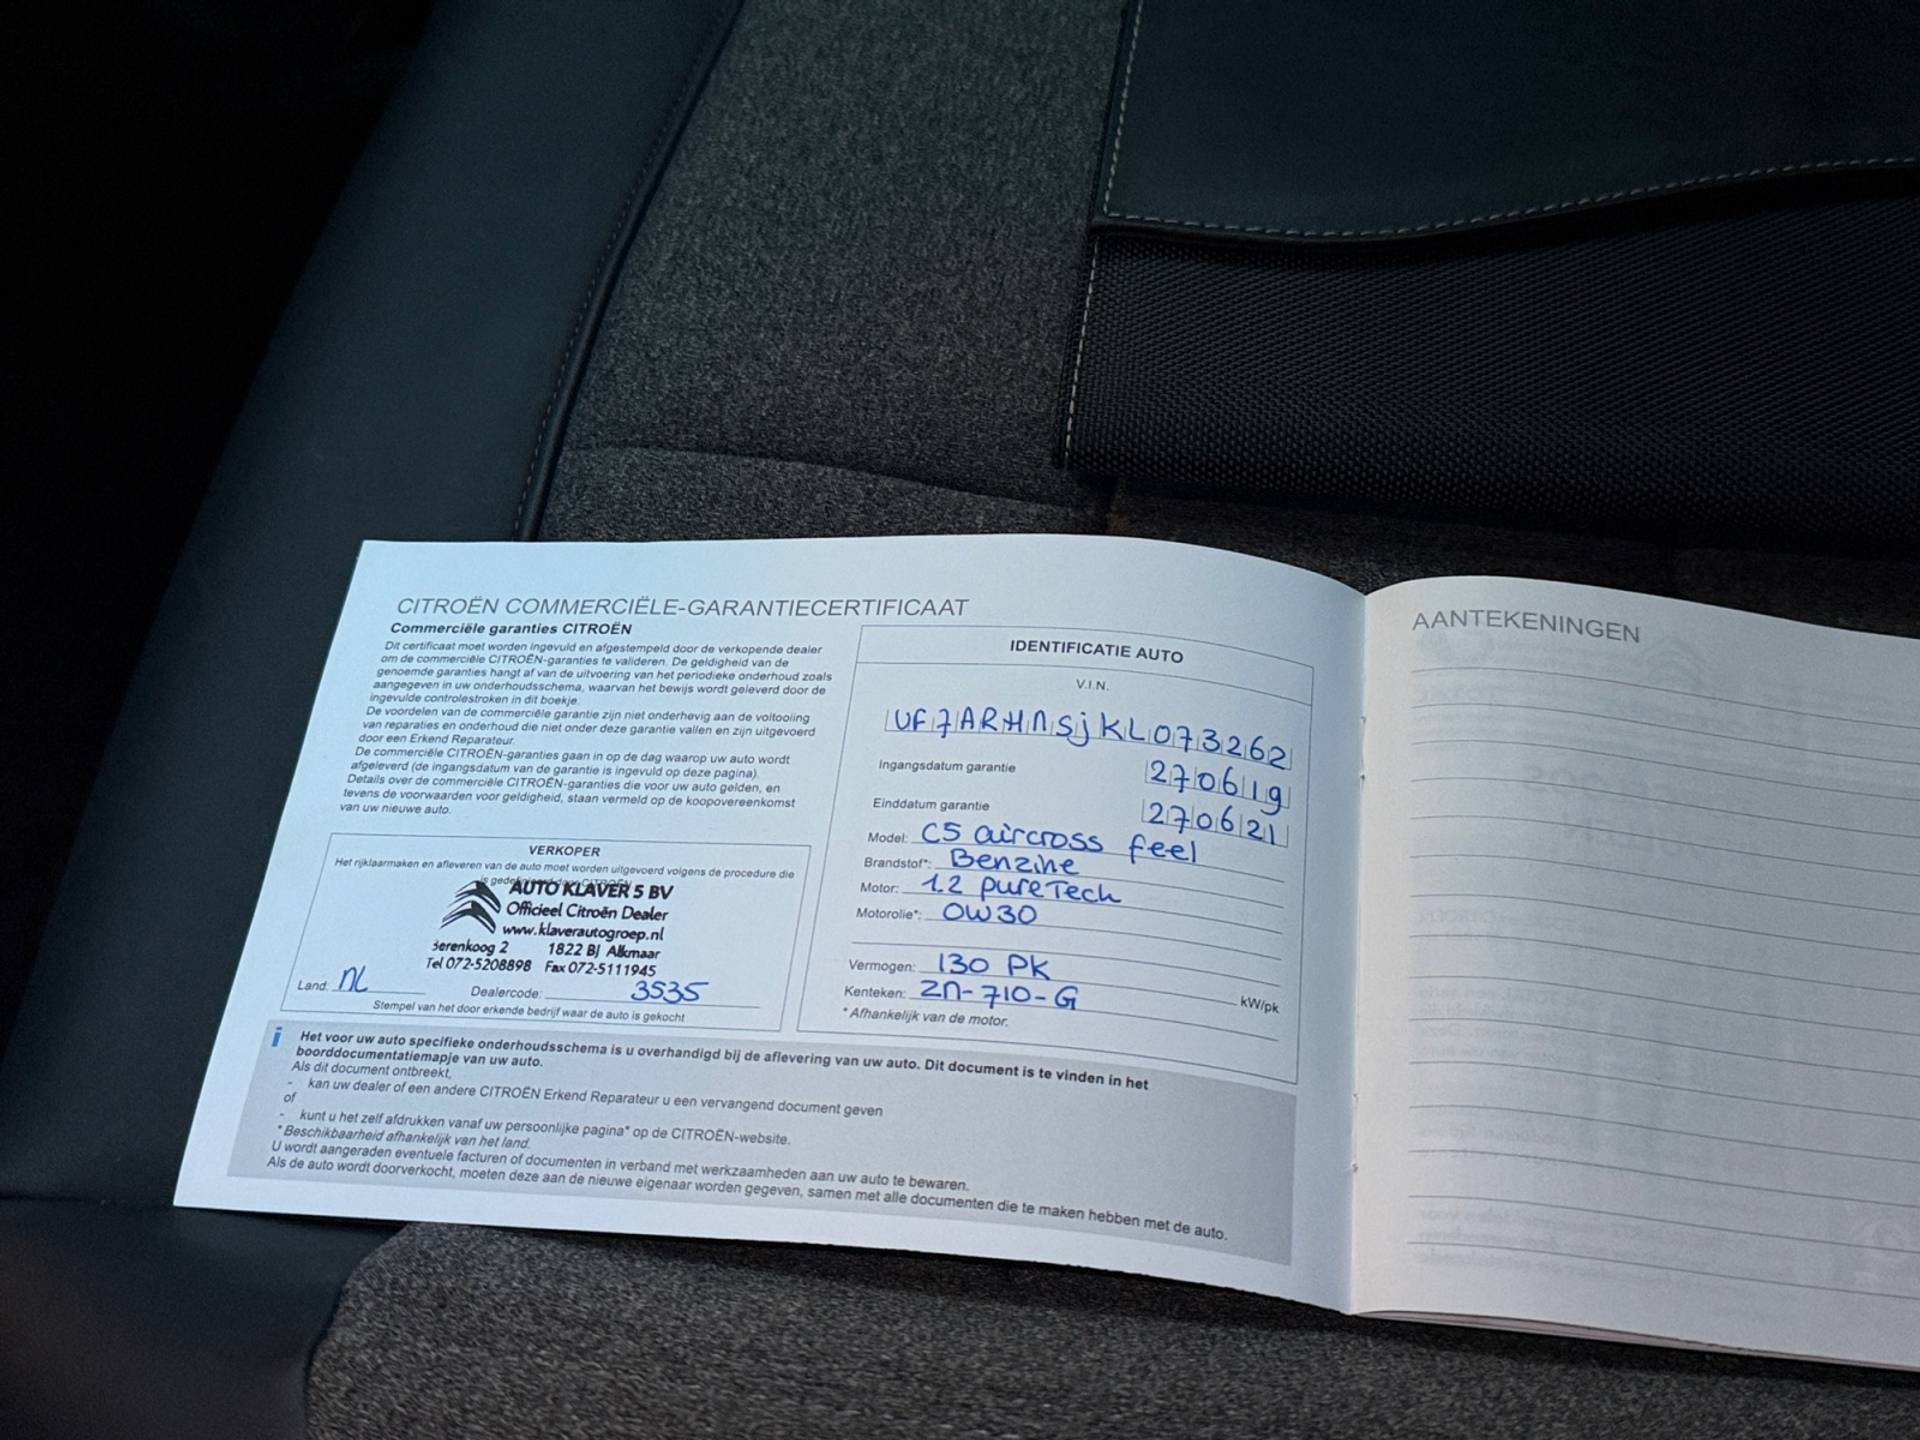 CITROËN COMMERCIËLE-GARANTIECERTIFICAAT
Commerciële garanties CITROËN
Dit certificaat moet worden ingevuld en afgestempeld door de verkopende dealer
om de commerciële CITROËN-garanties te valideren. De geldigheid van de
genoemde garanties hangt af van de uitvoering van het periodieke onderhoud zoals
aangegeven in uw onderhoudsschema, waarvan het bewijs wordt geleverd door de
ingevulde controlestroken in dit boekje.
De voordelen van de commerciële garantie zijn niet onderhevig aan de voltooiing
van reparaties en onderhoud die niet onder deze garantie vallen en zijn uitgevoerd
door een Erkend Reparateur.
De commerciële CITROËN-garanties gaan in op de dag waarop uw auto wordt
afgeleverd (de ingangsdatum van de garantie is ingevuld op deze pagina).
Details over de commerciële CITROËN-garanties die voor uw auto gelden, en
tevens de voorwaarden voor geldigheid, staan vermeld op de koopovereenkomst
van uw nieuwe auto.
VERKOPER
Het rijklaarmaken en afleveren van de auto moet worden uitgevoerd volgens de procedure die
AUTO KLAVER 5 BV
Officieel Citroën Dealer
www.klaverautogroep.nl
Berenkoog 2 1822 BJ Alkmaar
Tel 072-5208898 Fax 072-5111945
Land: NL Dealercode: 3535
Stempel van het door erkende bedrijf waar de auto is gekocht
IDENTIFICATIE AUTO
V.I.N.
VF7ARHNSjKL073262
Ingangsdatum garantie 270619
Einddatum garantie 270621
Model: C5 aircross feel
Brandstof*: Benzine
Motor: 1.2 pureTech
Motorolie*: 0W30
Vermogen: 130 PK kW/pk
Kenteken: ZN-710-G
* Afhankelijk van de motor.
i Het voor uw auto specifieke onderhoudsschema is u overhandigd bij de aflevering van uw auto. Dit document is te vinden in het
boorddocumentatiemapje van uw auto.
Als dit document ontbreekt,
- kan uw dealer of een andere CITROËN Erkend Reparateur u een vervangend document geven
of
- kunt u het zelf afdrukken vanaf uw persoonlijke pagina* op de CITROËN-website.
* Beschikbaarheid afhankelijk van het land.
U wordt aangeraden eventuele facturen of documenten in verband met werkzaamheden aan uw auto te bewaren.
Als de auto wordt doorverkocht, moeten deze aan de nieuwe eigenaar worden gegeven, samen met alle documenten die te maken hebben met de auto.
AANTEKENINGEN